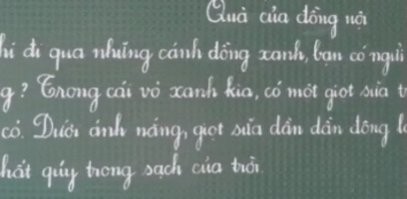 Quà của đồng nội
hi đi qua những cánh đồng xanh, bạn có ngửi
g? Trong cái vỏ xanh kia, có một giọt sữa t
có. Dưới ánh nắng, giọt sữa dần dần đông l
hất quý trong sạch của trời.